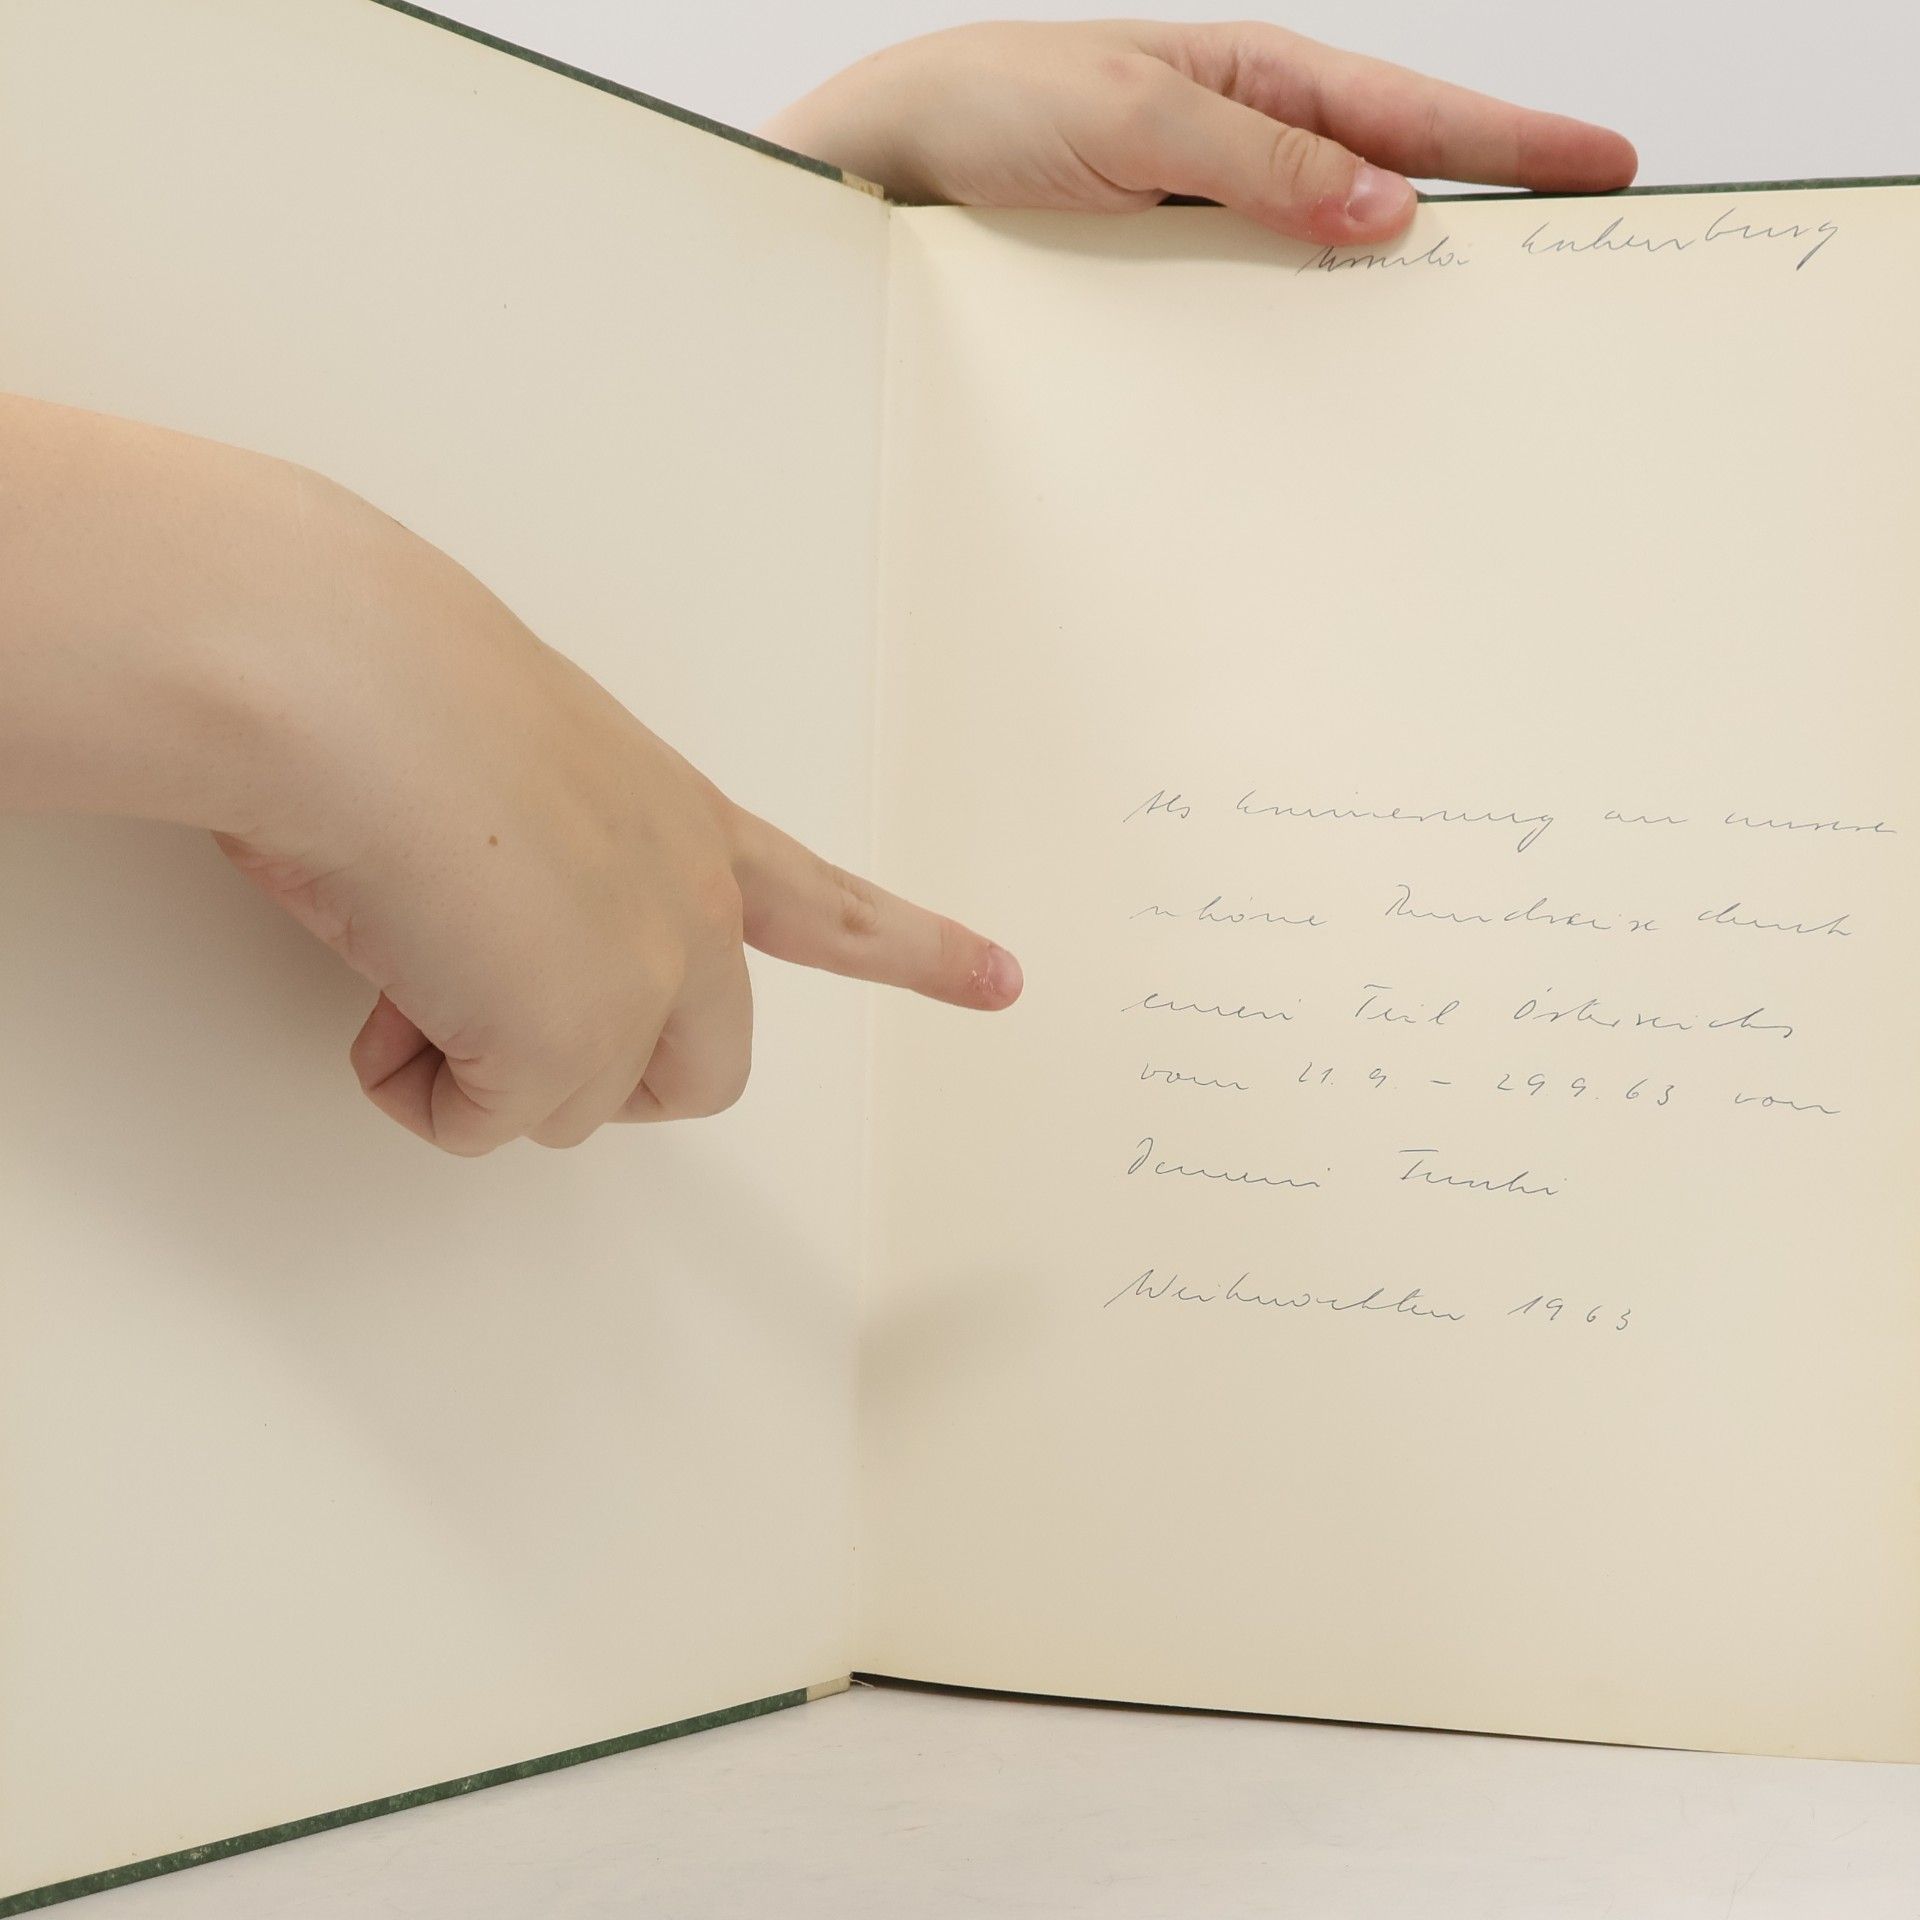 Ursula
Als Erinnerung an unsere
schöne Rundreise durch
einen Teil Österreichs
vom 21. 9. - 29 9. 63 von
Weihnachten 1963